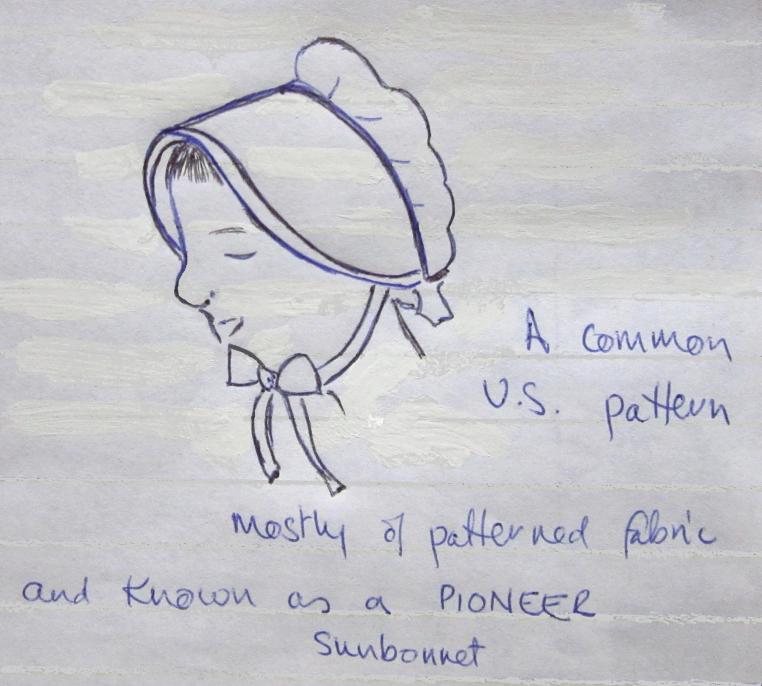 A common
U.S. pattern
mostly of patterned fabric
and known as a PIONEER
Sunbonnet